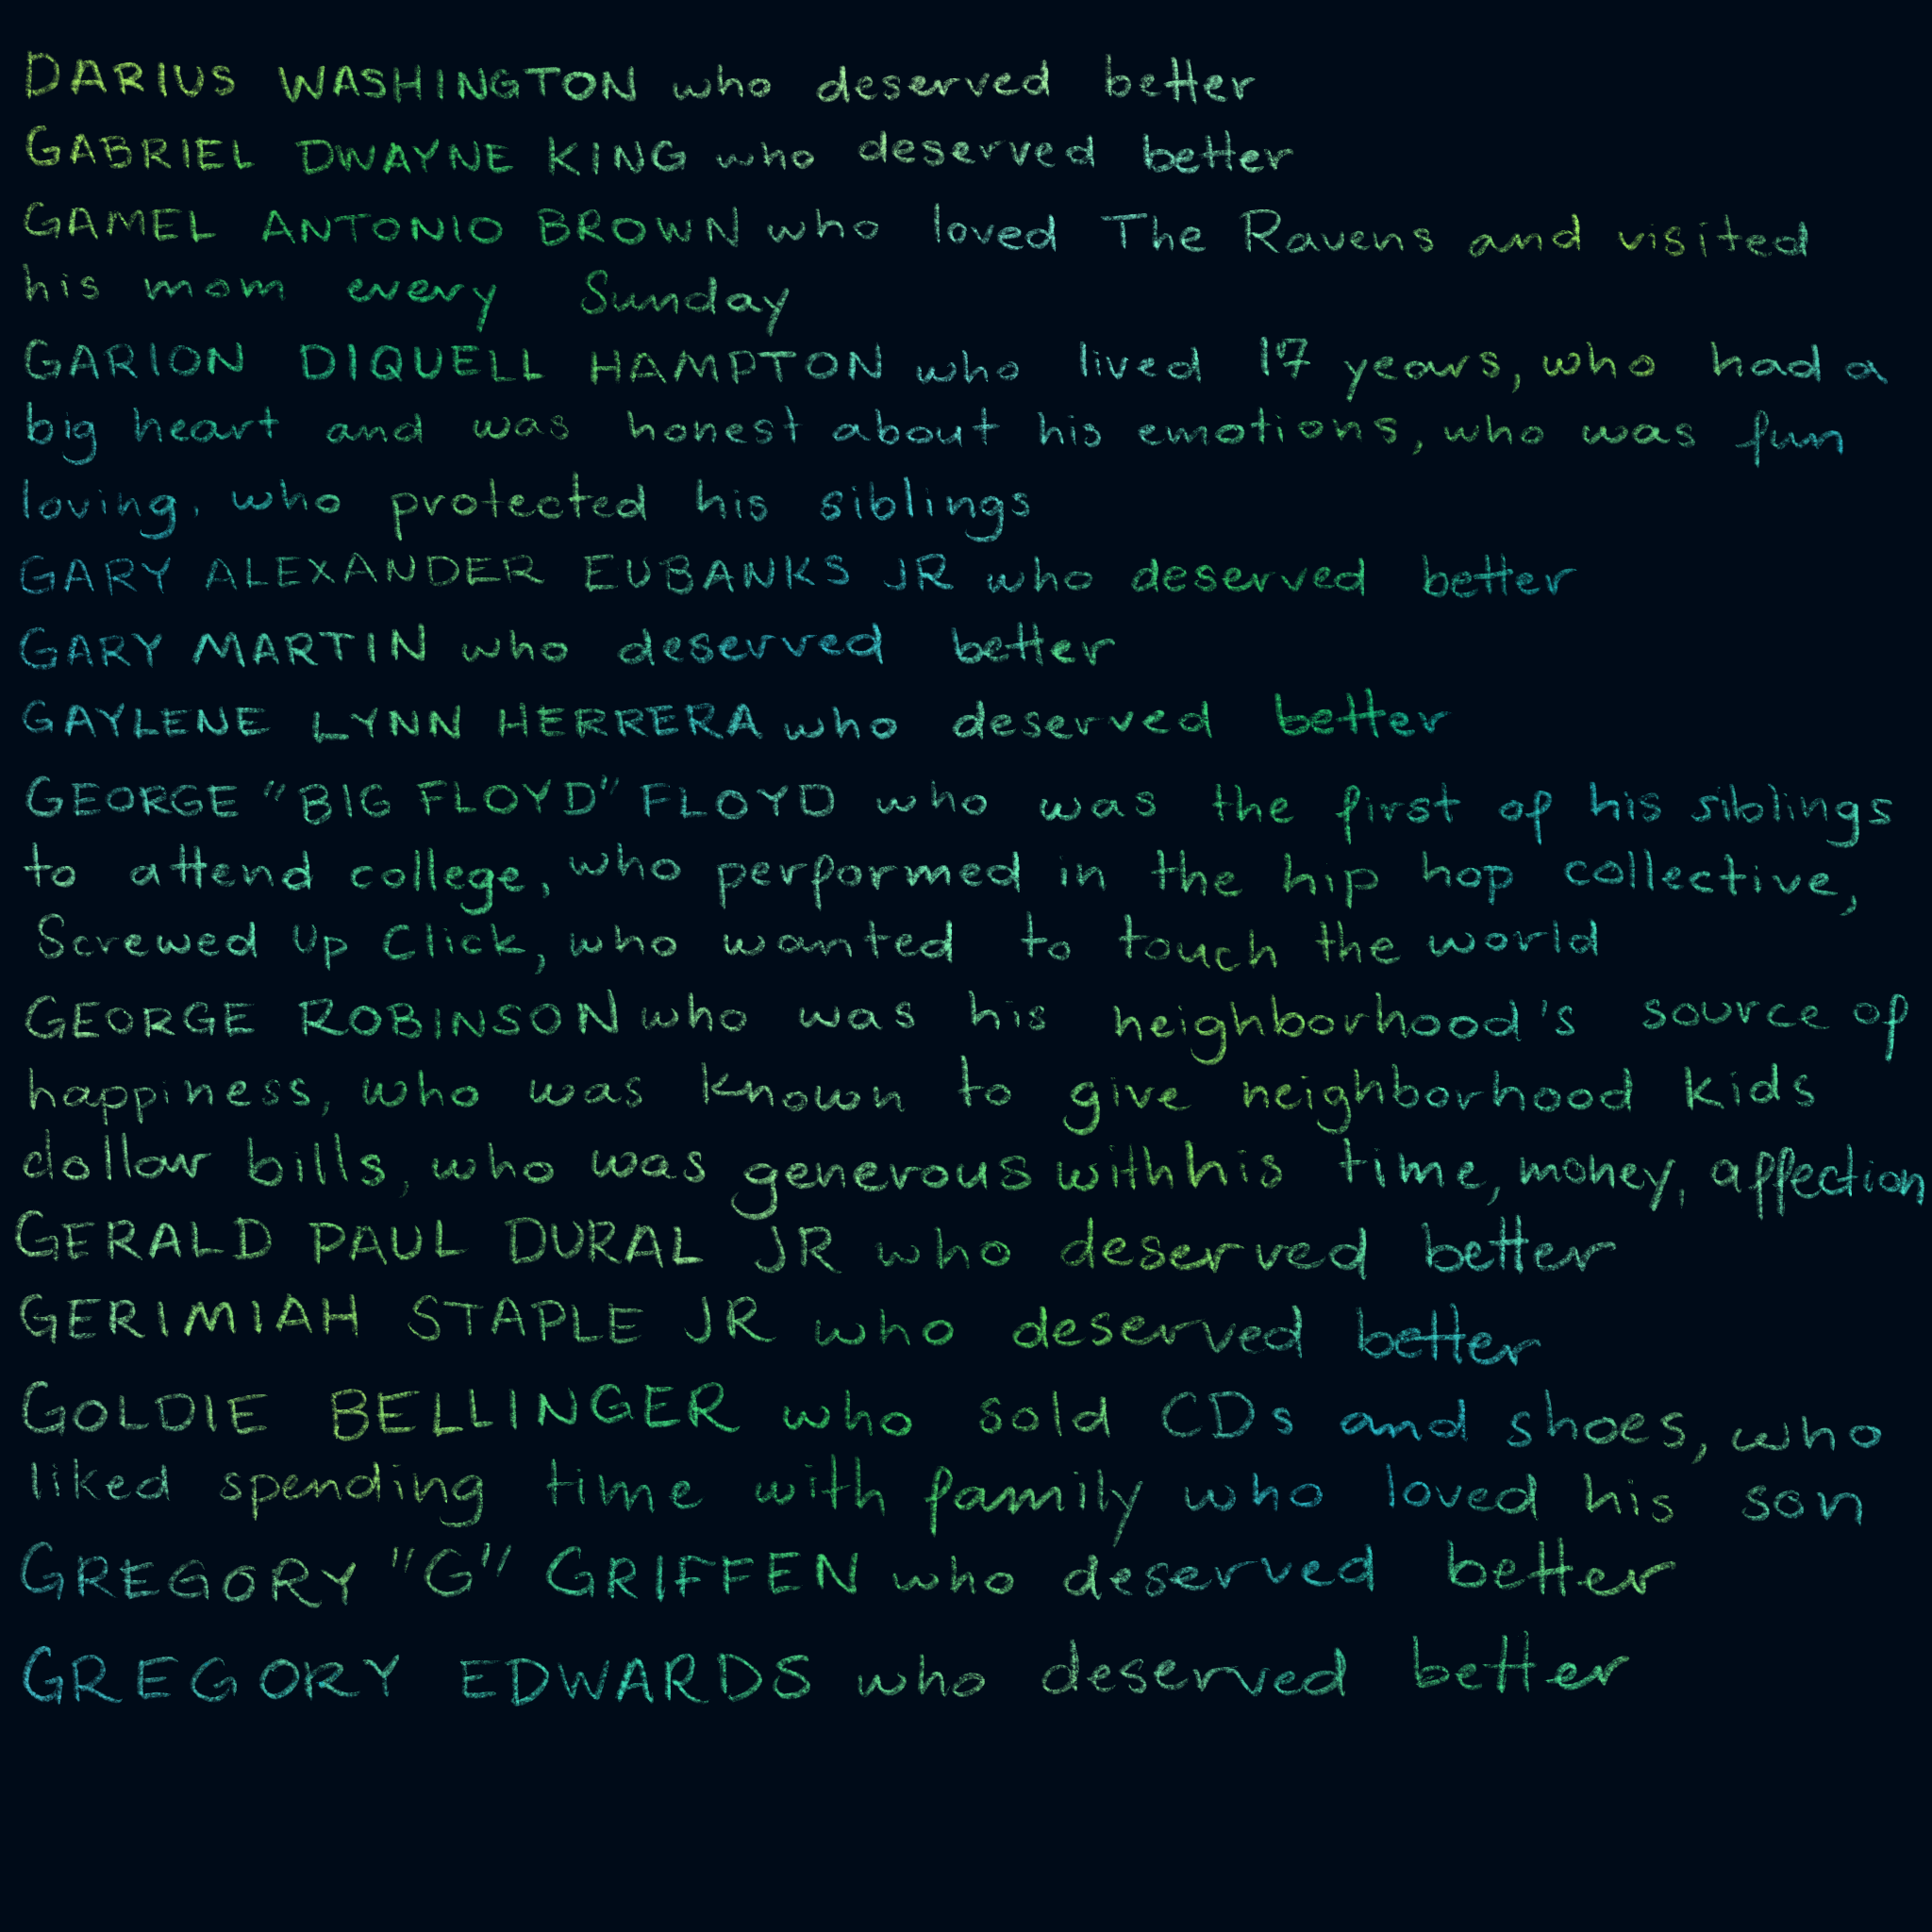 DARIUS WASHINGTON who deserved better
GABRIEL DWAYNE KING who deserved better
GAMEL ANTONIO BROWN who loved The Ravens and visited
his mom every Sunday
GARION DIQUELL HAMPTON who lived 17 years, who had a
big heart and was honest about his emotions, who was fun
loving, who protected his siblings
GARY ALEXANDER EUBANKS JR who deserved better
GARY MARTIN who deserved better
GAYLENE LYNN HERRERA who deserved better
GEORGE "BIG FLOYD" FLOYD who was the first of his siblings
to attend college, who performed in the hip hop collective,
Screwed Up Click, who wanted to touch the world
GEORGE ROBINSON who was his neighborhood's source of
happiness, who was known to give neighborhood kids
dollar bills, who was generous with his time, money, affection
GERALD PAUL DURAL JR who deserved better
GERIMIAH STAPLE JR who deserved better
GOLDIE BELLINGER who sold CDs and shoes, who
liked spending time with family who loved his son
GREGORY "G" GRIFFEN who deserved better
GREGORY EDWARDS who deserved better